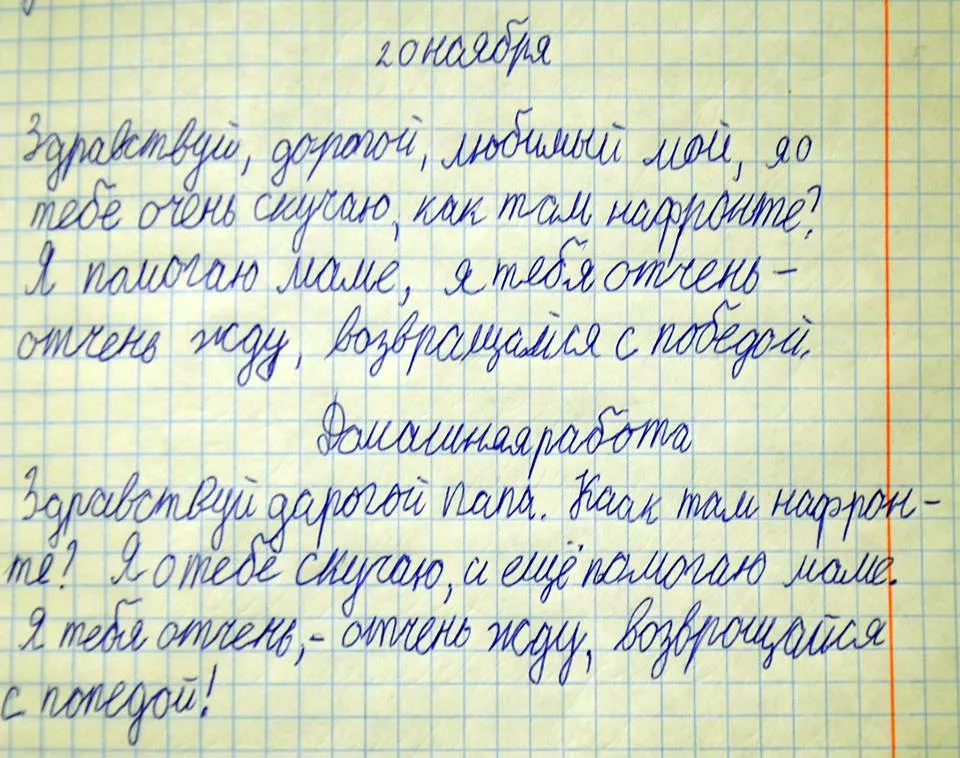 20 ноября
Здравствуй, дорогой, любимый мой, я о
тебе очень скучаю, как там нафронте?
Я помогаю маме, я тебя отчень-
отчень жду, возвращайся с победой.
Домашняяработа
Здравствуй дарогой папа. Каак там нафрон-
те? Я о тебе скучаю, и ещё помогаю маме.
Я тебя отчень,- отчень жду, возврощайся
с попедой!